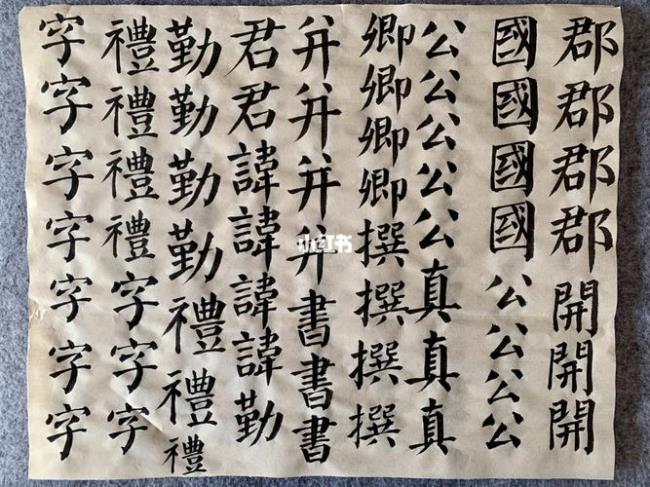 郡郡郡郡開開開
國國國國公公公公
公公公公公真真真
卿卿卿卿撰撰撰撰
并并并并書書書
君君諱諱諱諱勤
勤勤勤勤禮禮禮
禮禮禮禮字字字
字字字字字字字
小红书